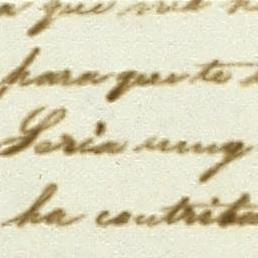 a que
para que te
Seria muy
ha contribu